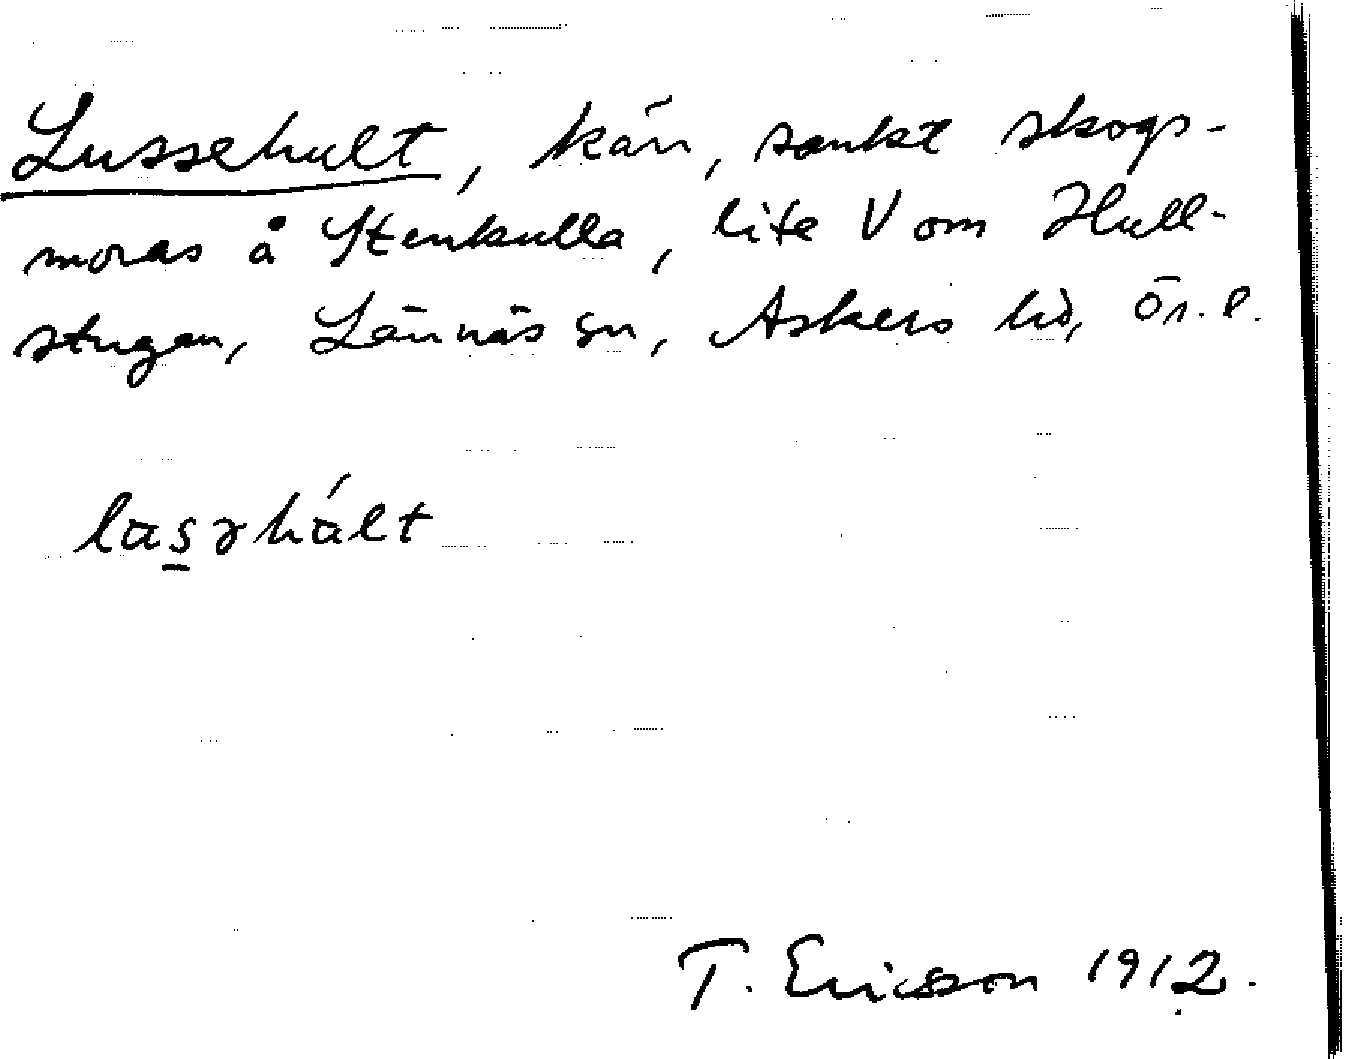 Lussehult, kärr, sankt skogs-
moras å Stenkulla, lite V om Hull-
stugan, Lännäs sn, Askers hd, Ör. l.
lasəhált
T. Ericsson 1912.